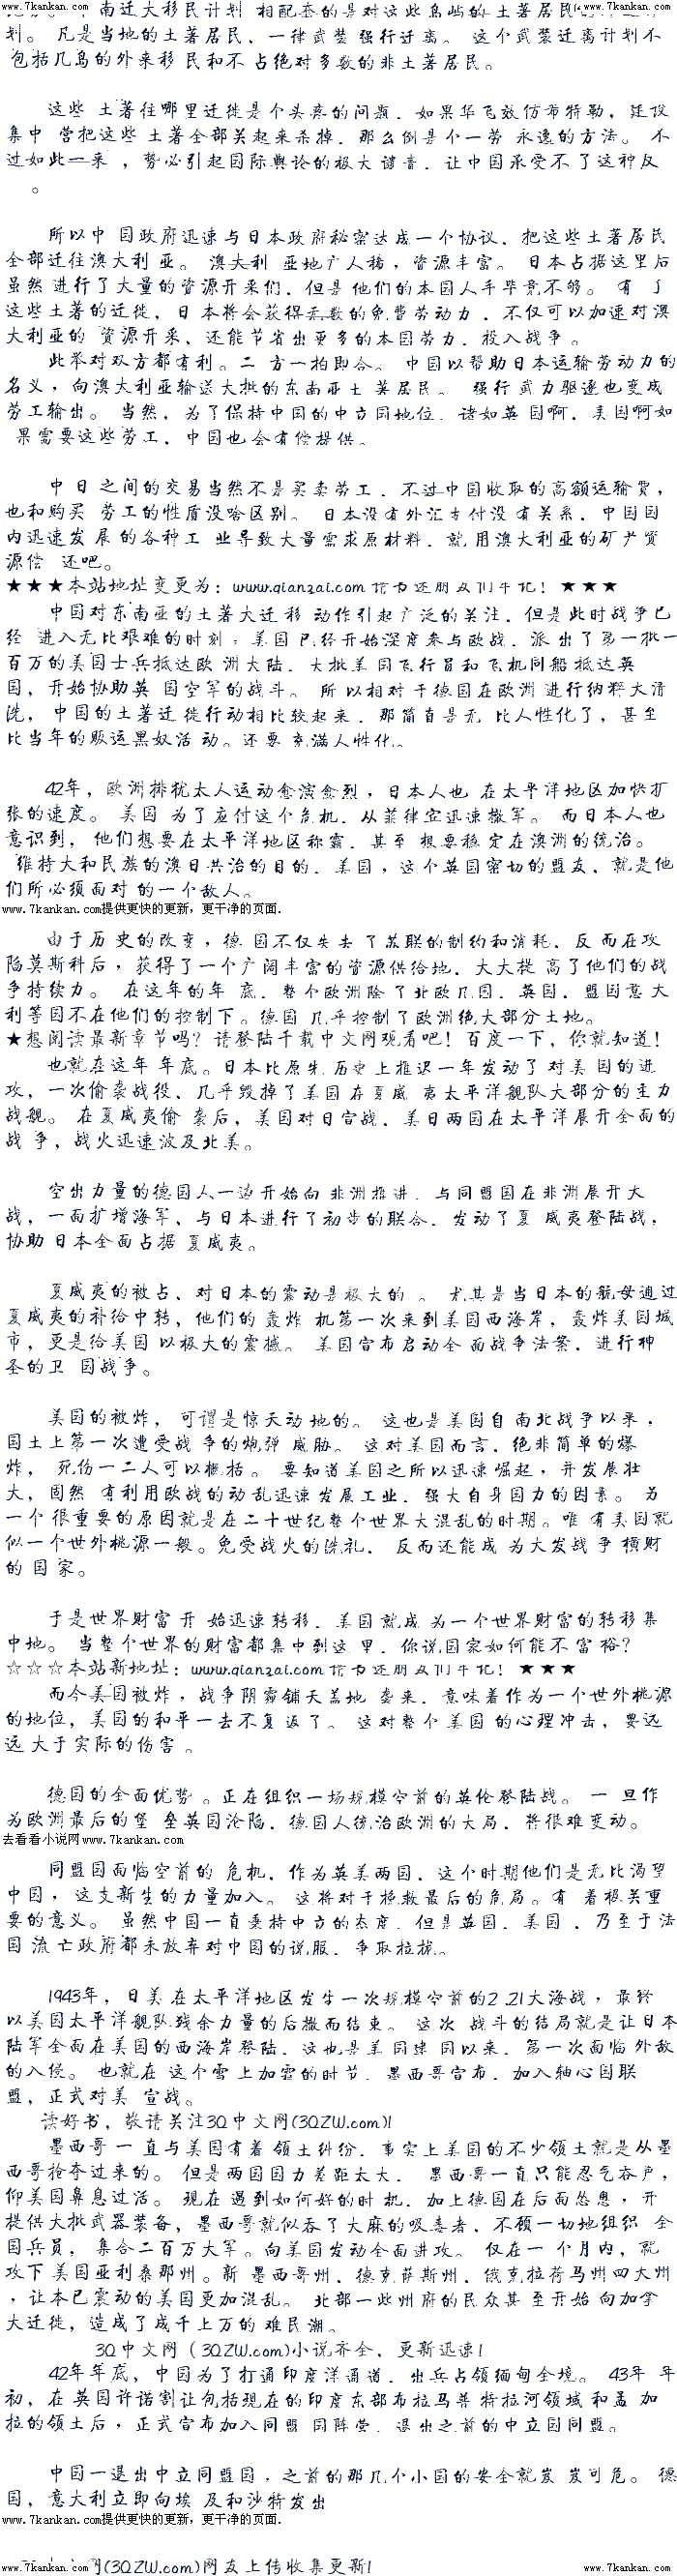 www.7kankan.com www.7kankan.com
南迁大移民计划 相配套的是对这些岛屿的土著居民的
划。 凡是当地的土著居民、一律武装 强行迁离。 这个武装迁离计划不
包括几岛的外来移 民和不 占绝对多数的非土著居民。
这些 土著往哪里迁徙是个头疼的问题．如果华飞效仿希特勒，建设
集中 营把这些 土著全部关起来杀掉．那么倒是个一劳 永逸的方法。 不
过如此一来 ，势必引起国际舆论的极大 谴责．让中国承受不 了这种反
。
所以中 国政府迅速与日本政府秘密达成一个协议．把这些土著居民
全部迁往澳大利 亚。 澳大利 亚地广人稀，资源丰富。 日本占据这里后
虽然 进行了大量的资源开采们．但是 他们的本国人手毕竟不够。 有 了
这些土著的迁徙，日 本将会获得无数的免费劳动力．不仅可以加速对澳
大利亚的 资源开采、还能节省出更多的本国劳力．投入战争。
此举对双方都有利。二 方一拍即合。 中国以帮助日本运输劳动力的
名义，向澳大利亚输送大批的东南亚土 著居民。 强行 武力驱逐也变成
劳工输出。 当然，为了保持中国的中立国地位．诸如英 国啊．美国啊如
果需要这些劳工．中国也会有偿提供。
中 日 之间的交易当然不是买卖劳工．不过中国收取的高额运输费，
也和购买 劳工的性质没啥区别。 日本没有外汇支付没有关系．中国国
内迅速发 展 的各种工 业导致大量需求原材料．就 用澳大利亚的矿产资
源偿 还吧。
★★★本站地址变更为：www.qianzai.com 请书迷朋友们牢记！★★★
中国对东南亚的土著大迁 移 动作引起广泛的关注．但是此时战争已
经 进入无比艰难的时刻，美国已经开始深度参与欧战．派 出了第一批一
百万的美国士兵抵达欧 洲大陆．大批美 国飞行员和飞机同船 抵达英
国，开始协助英 国空军的战斗。 所 以相对 于德国在欧洲 进行纳粹大清
洗， 中国的土著迁 徙行动相比较起来．那简直是无 比人性化了，甚至
比当年的贩运黑奴活 动。还要 充满人性化。
42年，欧洲排犹太人运动愈演愈烈，日本人也 在太平洋地区加快扩
张的速度。 美国 为了应付这个危机．从菲律宾迅速撤军。 而日本人也
意识到， 他们想要在太平洋地区称霸．甚至 想要稳 定在澳洲的统治。
维持大和民族的澳日共治的目的．美国，这个英国密切的盟友．就是他
们所必须面对 的一个敌人。
www.7kankan.com提供更快的更新，更干净的页面．
由于历 史的改变，德 国不仅失去 了苏联的制约和消耗．反 而在攻
陷莫斯科后，获得了一个广阔丰富的资源供给地．大大提 高了他们的战
争持续力。 在这年的年 底．整个欧洲除了北欧几国、英国．盟国意 大
利等国不在他们的控制下。德国 几乎控制了欧洲绝大部分土地。
★想阅读最新章节吗？请登陆千载中文网观看吧！百度一下，你就知道！
也就在这年 年底。日本比原先历史上推迟一年发动了对美 国的进
攻，一次偷袭战役、几乎毁掉了美国在夏威 夷太平洋舰队大部分的主力
战舰。 在夏威夷偷 袭后，美国对日宣战．美日两国在太平洋展开全面的
战 争，战火迅速波及北美。
空出力量的德国人一边开始向 非洲推进．与同盟国在非洲展开大
战，一面扩增海军、与日本进行了初步的联合．发动了夏 威夷登陆战，
协助日本全面占据 夏威夷。
夏威夷的被占、对日本的震动是极大的 。 尤其是当日本的航母通过
夏威夷的补给中转，他们的 轰炸 机第一次来到美国西海岸，轰炸美国城
市，更是给美国 以极大的震撼。 美国宣布启动全 面战争法案．进行神
圣的卫 国战争。
美国的被炸， 可谓是惊天动 地的。 这也是美国自 南北战争以来，
国土上第一次遭受战 争的炮弹 威胁。 这对美国而言．绝非简单的爆
炸， 死伤一二人可以概括 。 要知道美国之所以迅速 崛起，并发展壮
大，固然 有利用欧战的动 乱迅速 发展工业．强大自身国力的因素。 另
一个 很重要的原因就是在二十世纪整个世界大混乱的时期。唯 有美国就
似一个世外桃源一般。免受战火的洗礼． 反而还能成 为大发战 争 横财
的 国 家。
于是世界财富 开 始迅速 转移．美国 就成 为一个世界财富的转移集
中地。 当整个世界的财富都集中到这 里．你说国家如何能不富 裕？
☆☆☆本站新地址：www.qianzai.com 请书迷朋友们牢记！★★★
而今美国被炸，战争阴霾铺天盖地 袭来．意味着作为一个世外桃源
的地位，美国的和平一去不复返了。 这对整个美国 的心理冲击，要远
远 大于实际的伤害 。
德国的全面优势 。正在组织一场规模空前的英伦登陆战。 一 旦作
为欧洲最后的堡 垒英国沦陷．德国人统治欧洲的大局．将很难变动。
去看看小说网www.7kankan.com
同盟国面临空前的 危机．作为英美两国．这个时期他们是无比渴望
中国，这支新生的力量加入。 这将对于挽救最后的危局。有 着极关重
要的意义。 虽然中国一直秉持中立的态度．但是英国、美国 ．乃至于法
国 流 亡政府都未放弃对中国的说服．争取拉拢。
1943年，日美在太平洋地区发生一次规模空前的2.21大海战，最终
以美国太平洋舰队残余力量的后撤而结束。 这次 战斗的结局就是让日本
陆军全面在美国的西海岸登陆．这也是美 国建 国以来．第一次面临外敌
的入侵。 也就在 这个雪上加霜的时节．墨西哥宣布．加入轴心国联
盟，正式对美 宣战。
读好书，敬请关注3Q中文网(3QZW.com)！
墨西哥 一 直与美国有着 领土纠纷．事实上美国的不少领土就是从墨
西哥抢夺过来的。 但是两国国力差距太大． 墨西哥一直只能忍气吞声，
仰美国鼻息过活。 现在 遇到如何好的时 机．加上德国在后面怂恿，开
提供大批武器装备，墨西哥就似吞了大麻的吸毒者．不顾一切地组织 全
国兵员， 集合二百万大军。向美国发动全面进攻。 仅在一 个月内，就
攻下美国亚利桑那州。新 墨西哥州．德克萨斯州．俄克拉荷马州四大州
，让本已震动的美国更加混乱。 北部一些州府的民众甚 至开始 向加拿
大迁徙，造成了成千上万的 难民潮。
3Q中文网（3QZW.com)小说齐全．更新迅速！
42年年底，中国为了打通印度洋通道．出兵占领缅甸全境。 43年 年
初，在 英国许诺割让包括现在的印度东部布拉马普特拉河领域 和孟 加
拉的领土后，正式宣布加入同盟 国阵营．退出之前的中立国同盟。
中国一退出中立同盟国，之前的那几个小国的安全就岌 岌可危。 德
国，意大利立即向埃 及和沙特发出
www.7kankan.com提供更快的更新，更干净的页面．
www.7kankan.com 网(3QZW.com)网友上传收集更新！ www.7kankan.com